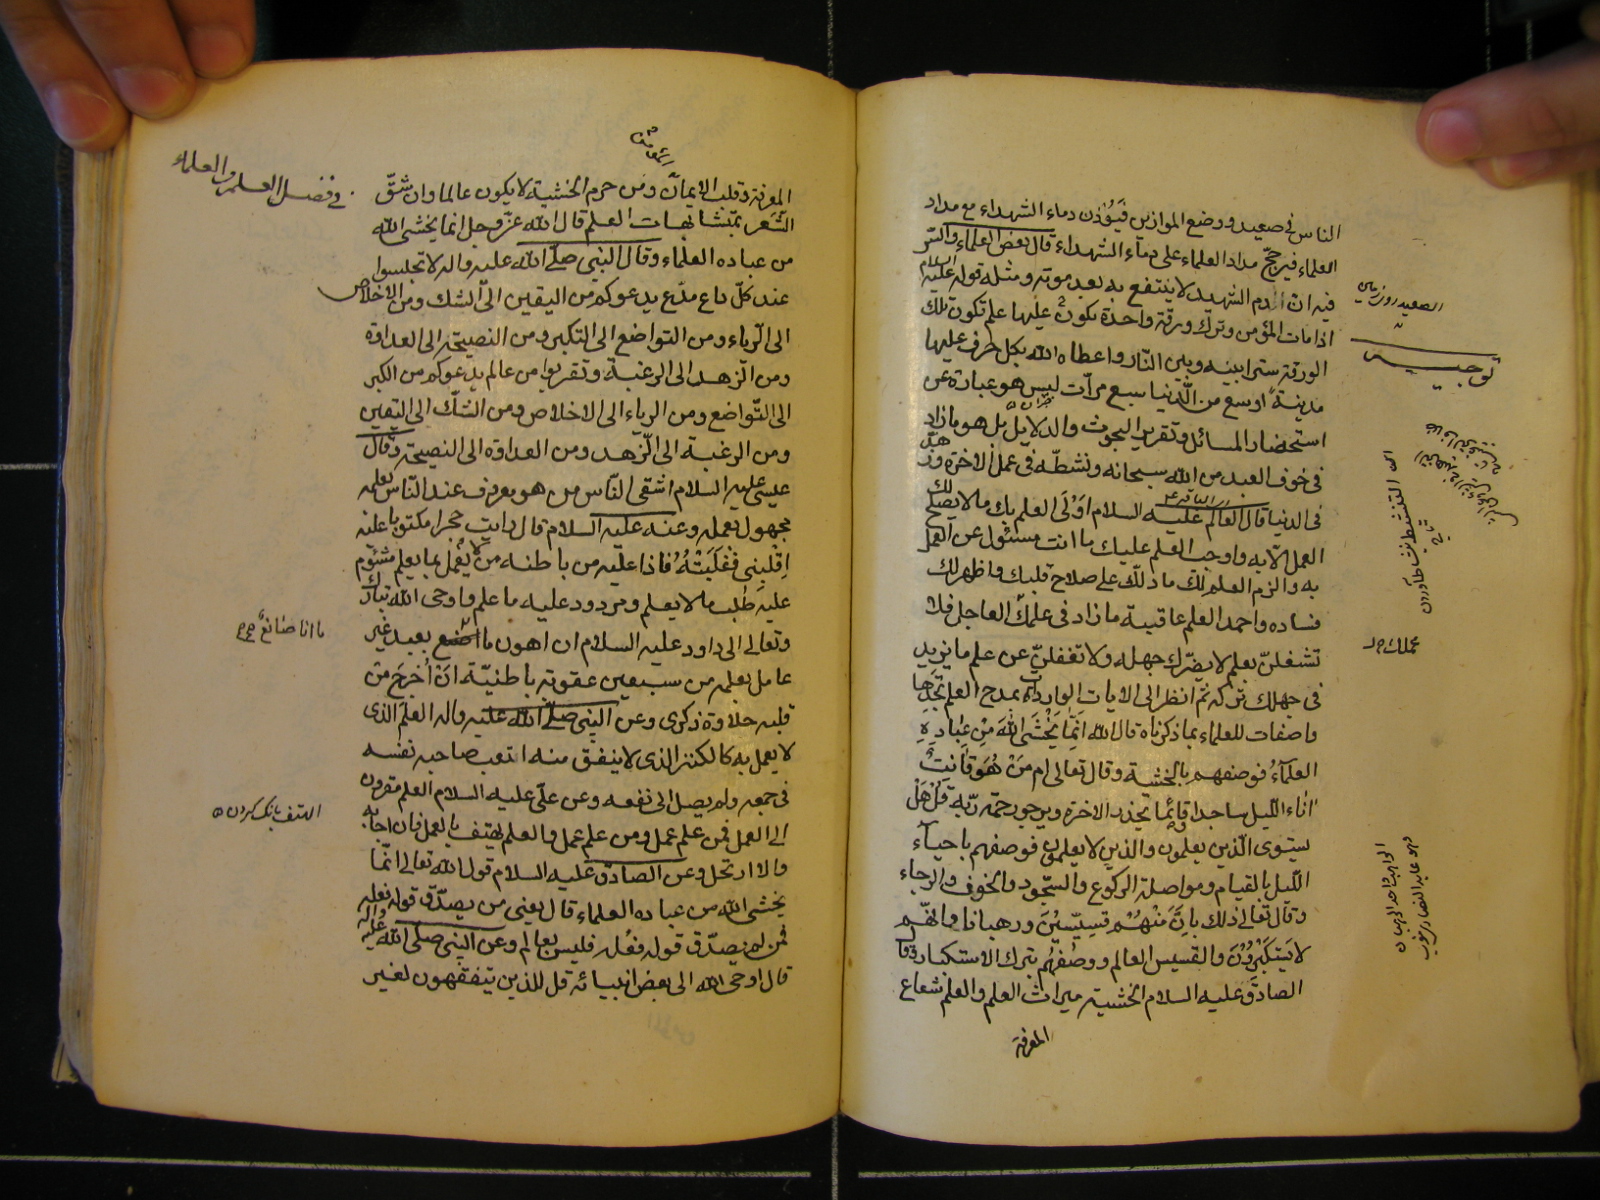 الناس فى صعيد ووضع الموازين فيوزن دماء الشهداء مع مداد
العلماء فيرجّح مداد العلماء على دماء الشهداء قال بعض العلماء والسّر
فيه ان دم الشهيد لا ينتفع به بعد موته ومثله قوله عليه السلام
اذا مات المؤمن وترك ورقة واحدة يكون عليها علم تكون تلك
الورقة سترا بينه وبين النّار واعطاه الله بكل حرف عليها
مدينة اوسع من الدّنيا سبع مرات ليس هو عبارة عن
استحضار المسائل وتقرير البحوث والدلايل بل هو ما زاد
فى خوف العبد من الله سبحانه ونشطّه فى عمل الاخرة وزهّد
فى الدنيا قال العالم عليه السلام اَوْلَى العلم بك ما لا يصلح لك
العمل الّا به واوجب العلم عليك ما انت مسئول عن العمل
به والزم العلم لك ما دلّك على صلاح قلبك واظهر لك
فساده واحمد العلم عاقبة ما زاد فى علمك العاجل فلا
تشغلنّ بعلم لا يضرّك جهله ولا تغفلنّ عن علم ما يزيد
فى جهلك تركه ثم انظر الى الايات الواردات بمدح العلم تَجِدْها
واصفات للعلماء بما ذكرناه قال الله اِنَّمٰا يَخْشَى اللّٰهَ مِنْ عِبٰادِهِ
العُلَمٰٓاءُ فوصفهم بالخشية وقال تعالى ام مَنْ هُوَ قٰانِتٌ
اٰنٰاء اللّيل ساجدا وقائِمًا يحذر الاخرة ويرجو رحمة ربّه قُلْ هَلْ
يستوى الّذين يعلمون والذين لا يعلمون فوصفهم باحيآء
اللّيل بالقيام ومواصلة الركوع والسّجود والخوف والرجاء
وقال تعالى ذلك بِاَنَّ مِنْهُمْ قِسِيّسِيْنَ ورهبانا وانّهم
لا يَسْتَكْبِرُوْنَ والقسيس العالم ووصْفهُم بترك الاستكبار وقال
الصادق عليه السلام الخشية ميراث العلم والعلم شعاع
المعرفة
الصعيد روى زمين
توجيه
التنشيط بنشاط آوردن
تاج
عملك خ ل
الرهبان واحد الرهبان
وهو عابد النصارى
فى فضل العلم والعلماء
المعرفة وقلب الايمان ومن حرم الخشية لا يكون عالما وان شقّ
الشّعر بمتشابهات العلم قال الله عزّ وجل انما يخشى الله
من عباده العلماء وقال النبى صلّى الله عليه واله لا تجلسوا
عند كلّ داع مدّع يدعوكم من اليقين الى الشك ومن الاخلاص
الى الرّياء ومن التواضع الى التكبر ومن النصيحة الى العداوة
ومن الزّهد الى الرغبة وتقربوا من عالم يدعوكم من الكبر
الى التّواضع ومن الرياء الى الاخلاص ومن الشّك الى اليقين
ومن الرغبة الى الزّهد ومن العداوة الى النصيحة وقال
عيسى عليه السلام اشقى النّاس من هو معروف عند النّاس بعلمه
مجهول بعمله وعنه عليه السلام قال رايت حجرا مكتوبا عليه
اِقْلِبنِى فَقَلَبْتُهُ فاذا عليه من باطنه من لا يَعْمل بما يعلم مشئوم
عليه طلب ما لا يعلم ومردود عليه ما علم واوحى الله تبارك
وتعالى الى داود عليه السلام ان اهون ما اصنع بعبد غير
عامل بعلمه من سبعين عقوبة باطنيّة انْ اُخرِجَ من
قلبه حلاوة ذكرى وعن النبى صلى الله عليه واله العلم الذى
لا يعمل به كالكنز الذى لا ينفق منه اتعب صاحبه نفسه
فى جمعه ولم يصل الى نفعه وعن علىّ عليه السلام العلم مقرون
الى العمل فمن علم عمل ومن علم عمل والعلم يهتف بالعمل فان اجابه
والا ارتحل وعن الصادق عليه السلام قول الله تعالى انّما
يخشى الله من عباده العلماء قال يعنى من يصدّق قوله فعله
فمن لم يصدّق قوله فعْله فليس بعالم وعن النبى صلى الله عليه واله
قال اوحى الله الى بعض انبيائه قل للذين يتفقّهون لغير
ما انا صانع خ ج
الهتف بانك كردن